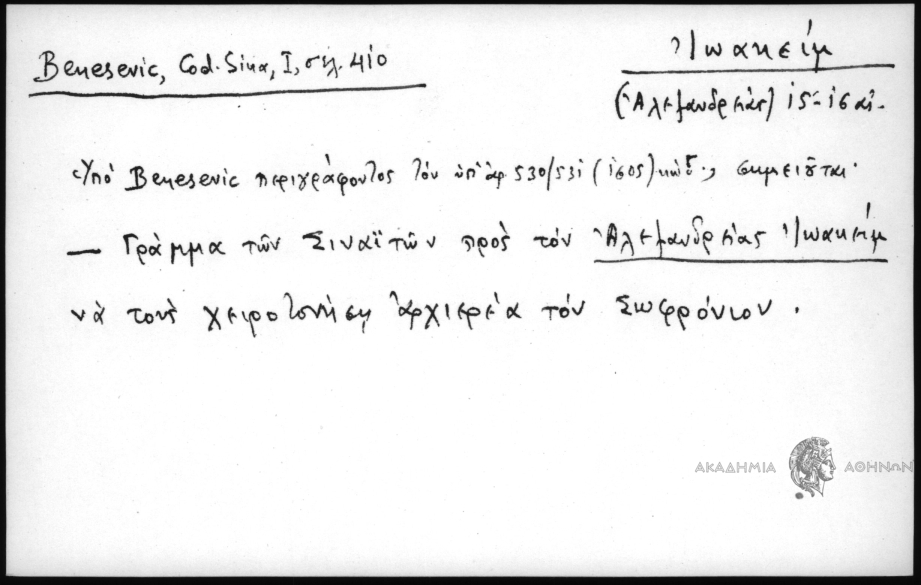 Benesevic, Cod. Sina, I, σελ. 410
Ἰωακείμ
(Ἀλεξανδρείας)
Ὑπό Benesevic περιγράφοντος τόν ὑπ' ἀρ. 530/531 σημειοῦται·
— Γράμμα τῶν Σιναϊτῶν πρὸς τόν Ἀλεξανδρείας Ἰωακείμ
νὰ τοὺς χειροτονήσῃ ἀρχιερέα τόν Σωφρόνιον.
ΑΚΑΔΗΜΙΑ ΑΘΗΝΩΝ